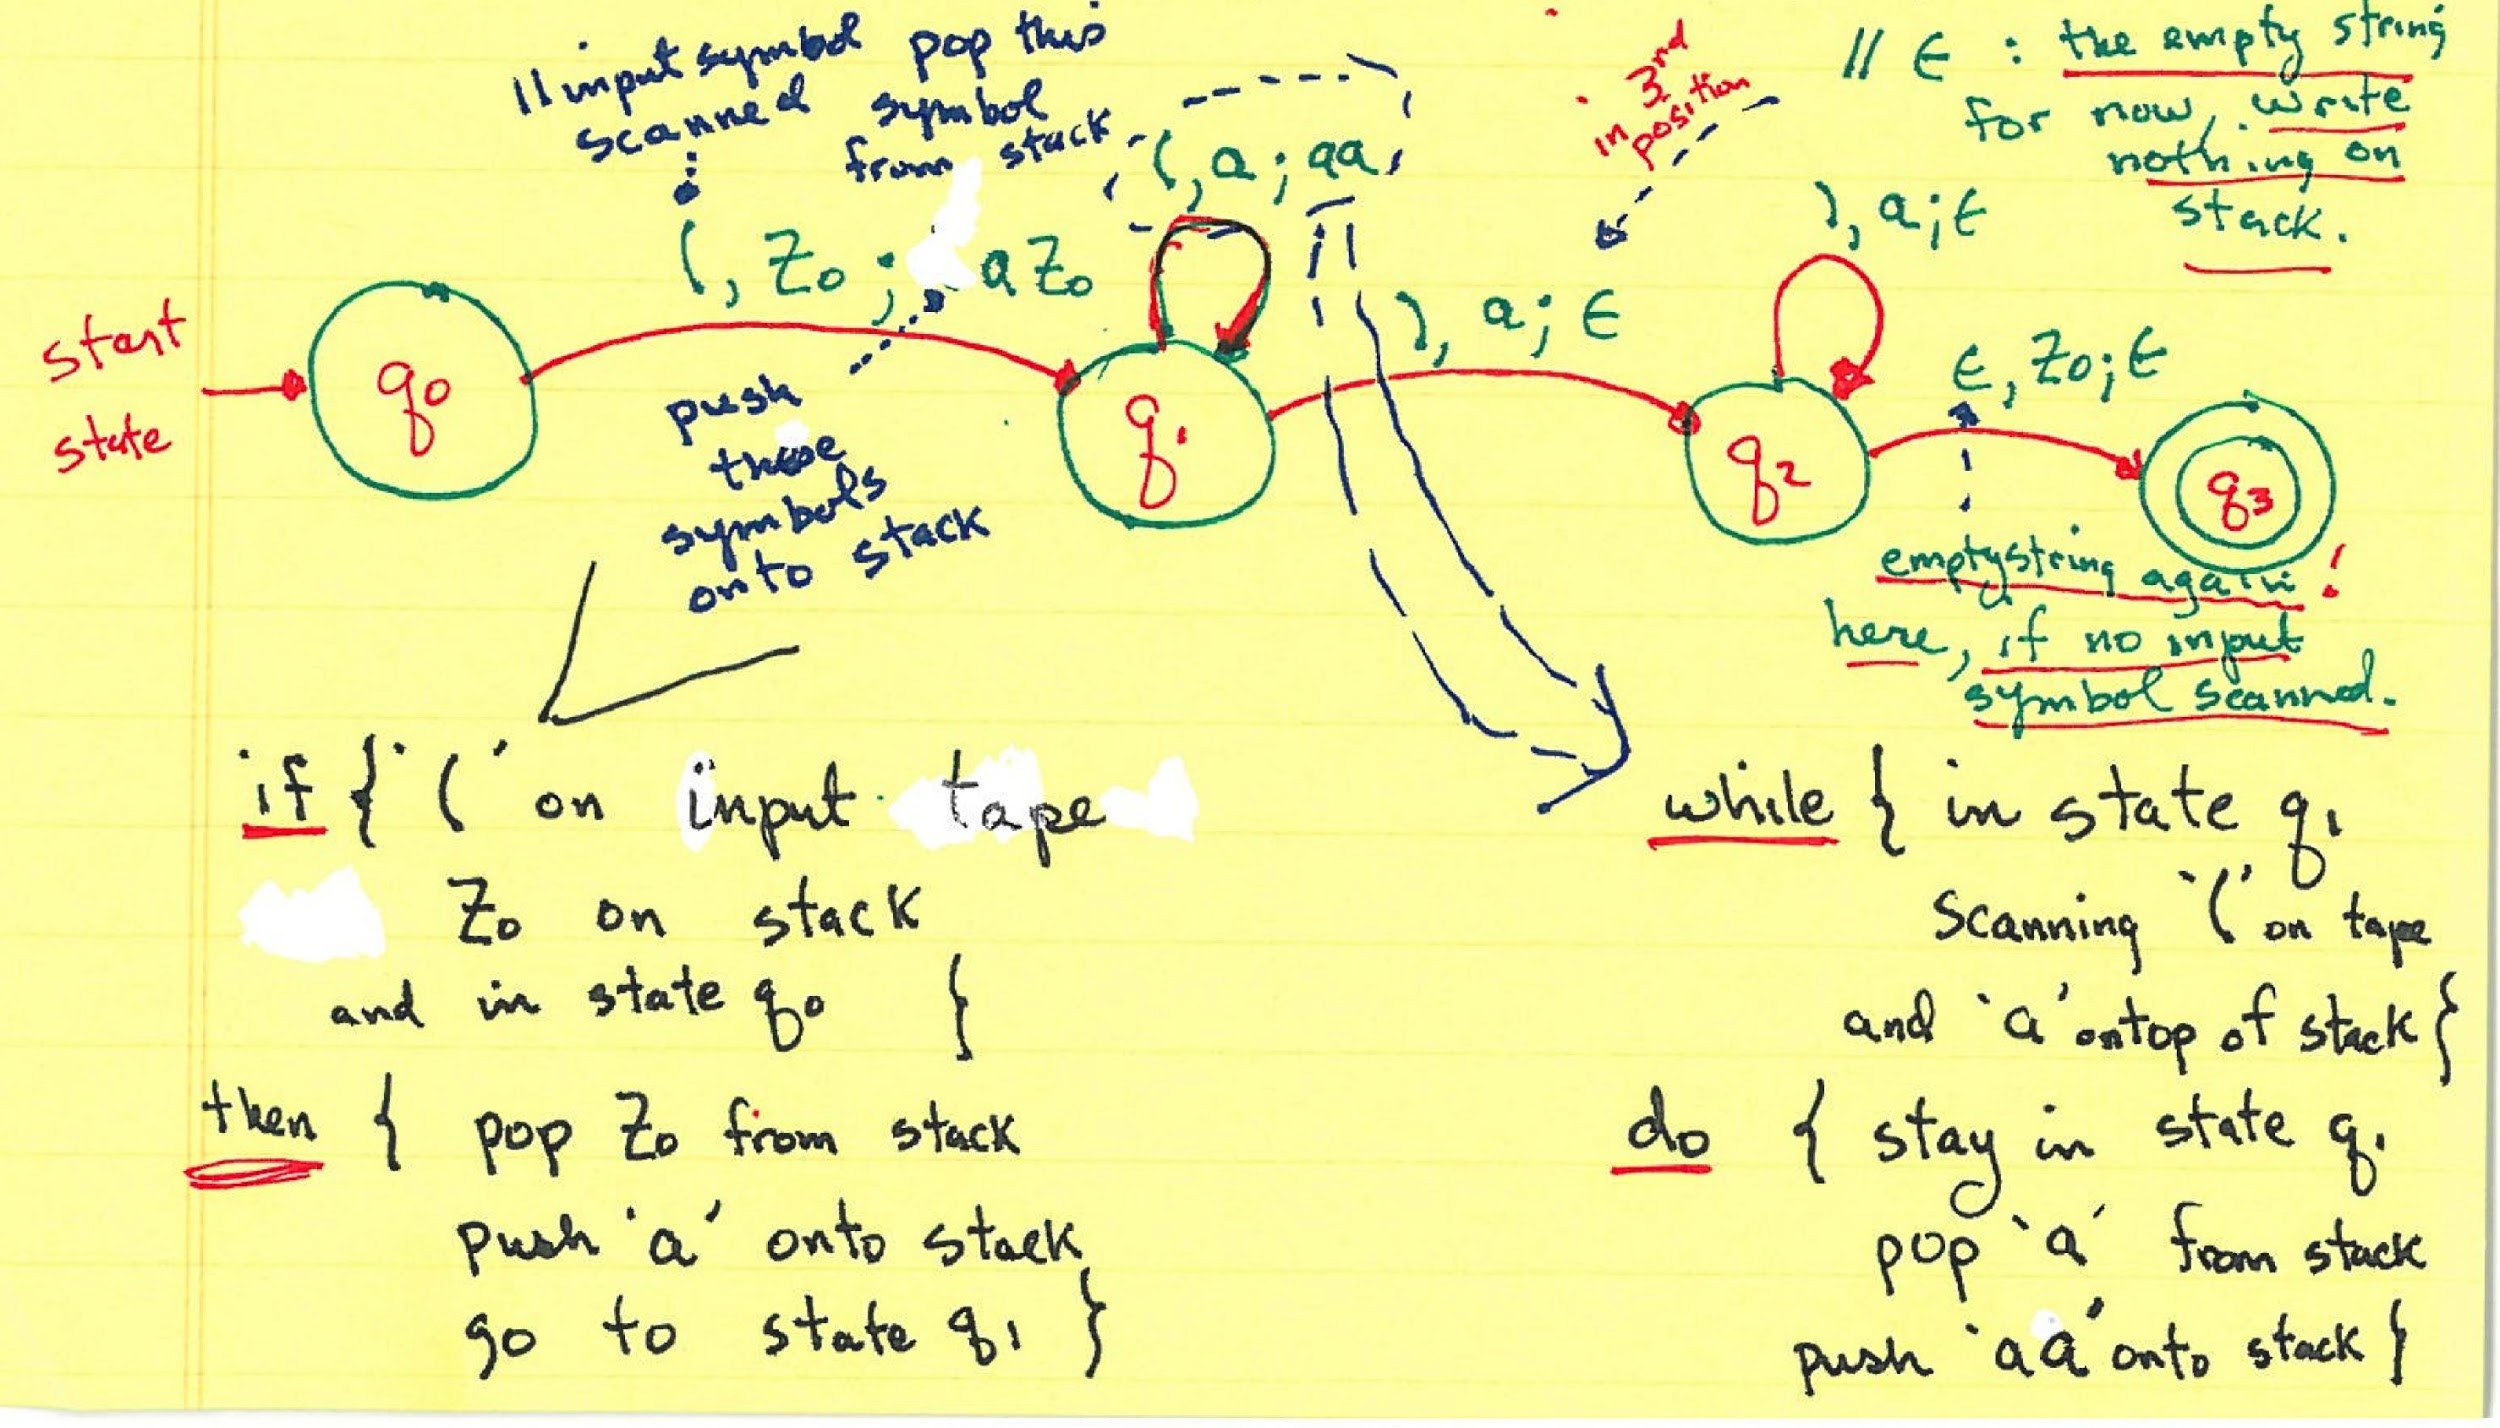 // input symbol
scanned
pop this
symbol
from stack
(, a; aa
3rd
in position
// ϵ : the empty string
for now, write
nothing on
stack.
(, Z0; aZ0
), a; ϵ
), a; ϵ
ϵ, Z0; ϵ
start
state
q0
q1
q2
q3
push
these
symbols
onto stack
empty string again!
here, if no input
symbol scanned.
if { '(' on input tape
Z0 on stack
and in state q0 }
then { pop Z0 from stack
push 'a' onto stack
go to state q1 }
while { in state q1
scanning '(' on tape
and 'a' ontop of stack }
do { stay in state q1
pop 'a' from stack
push 'aa' onto stack }